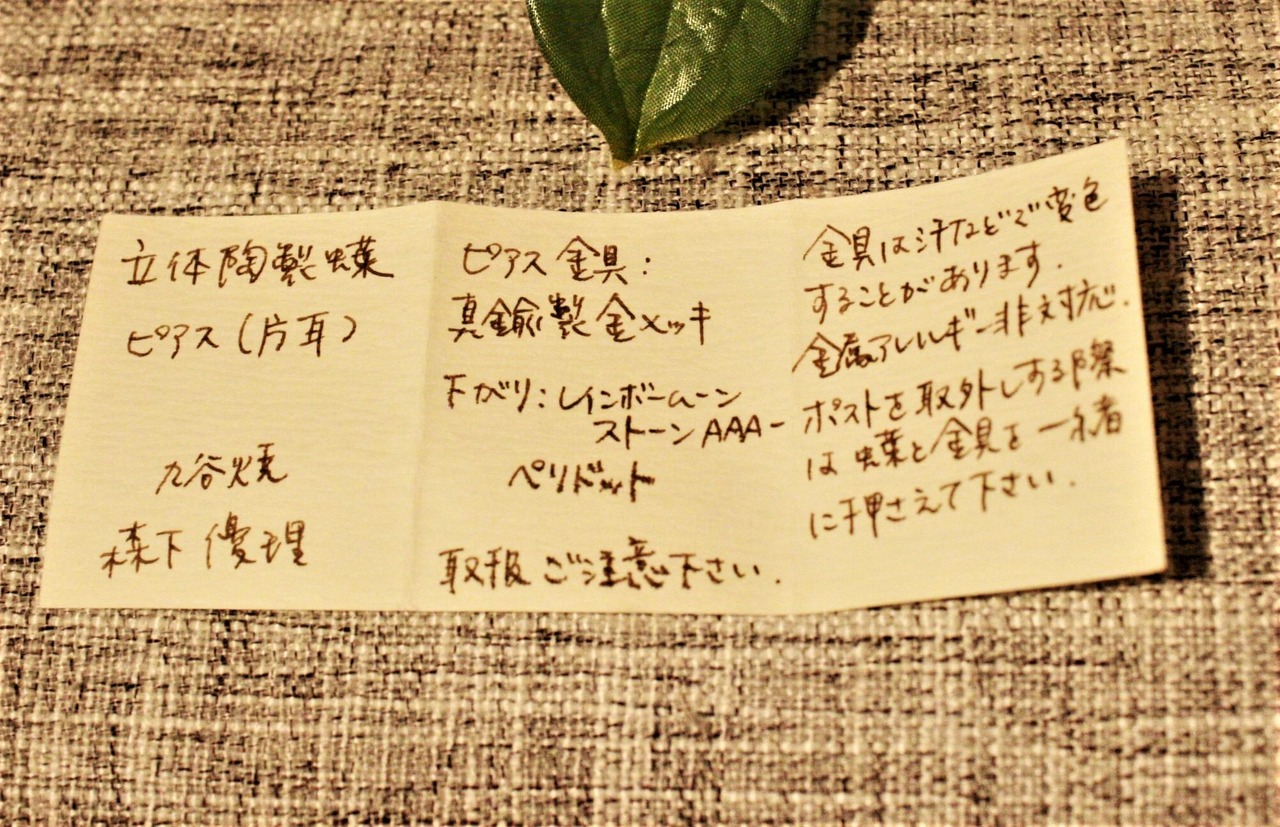 立体陶製蝶
ピアス(片耳)
九谷焼
森下 優理
ピアス金具:
真鍮製金メッキ
下がり:レインボームーン
ストーンAAA-
ペリドット
取扱ご注意下さい.
金具は汗などで変色
することがあります.
金属アレルギー非対応.
ポストを取外しする際
は蝶と金具を一緒
に押さえて下さい.